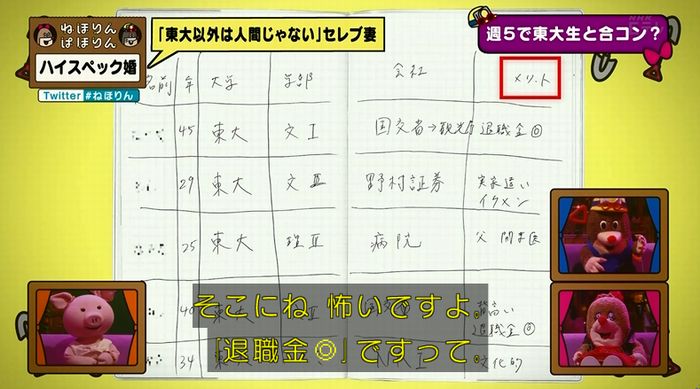 ねほりん
ぱほりん
ハイスペック婚
Twitter #ねほりん
「東大以外は人間じゃない」セレブ妻
NHK
週5で東大生と合コン?
名前 年 大学 学部 会社 メリット
45 東大 文Ⅰ 国交省→観光庁 退職金◎
29 東大 文Ⅲ 野村証券 実家遠い
イケメン
25 東大 理Ⅲ 病院 父 開業医
40 背高い
退職金◎
34 東 文化的
そこにね 怖いですよ。
「退職金◎」ですって。